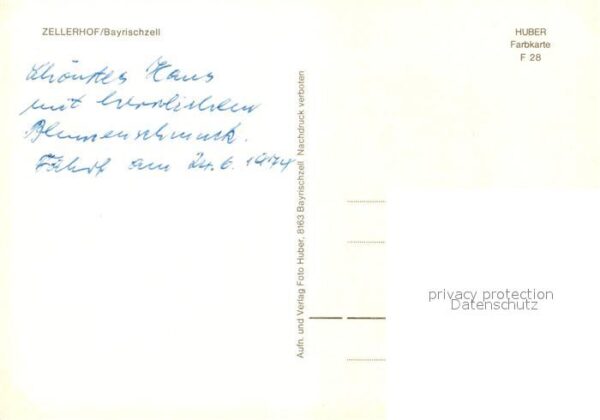 ZELLERHOF/Bayrischzell
HUBER
Farbkarte
F 28
Schönstes Haus
mit herrlichem
Blumenschmuck.
Fahrt am 24.6.1974
Aufn. und Verlag Foto Huber, 8163 Bayrischzell Nachdruck verboten
privacy protection
Datenschutz